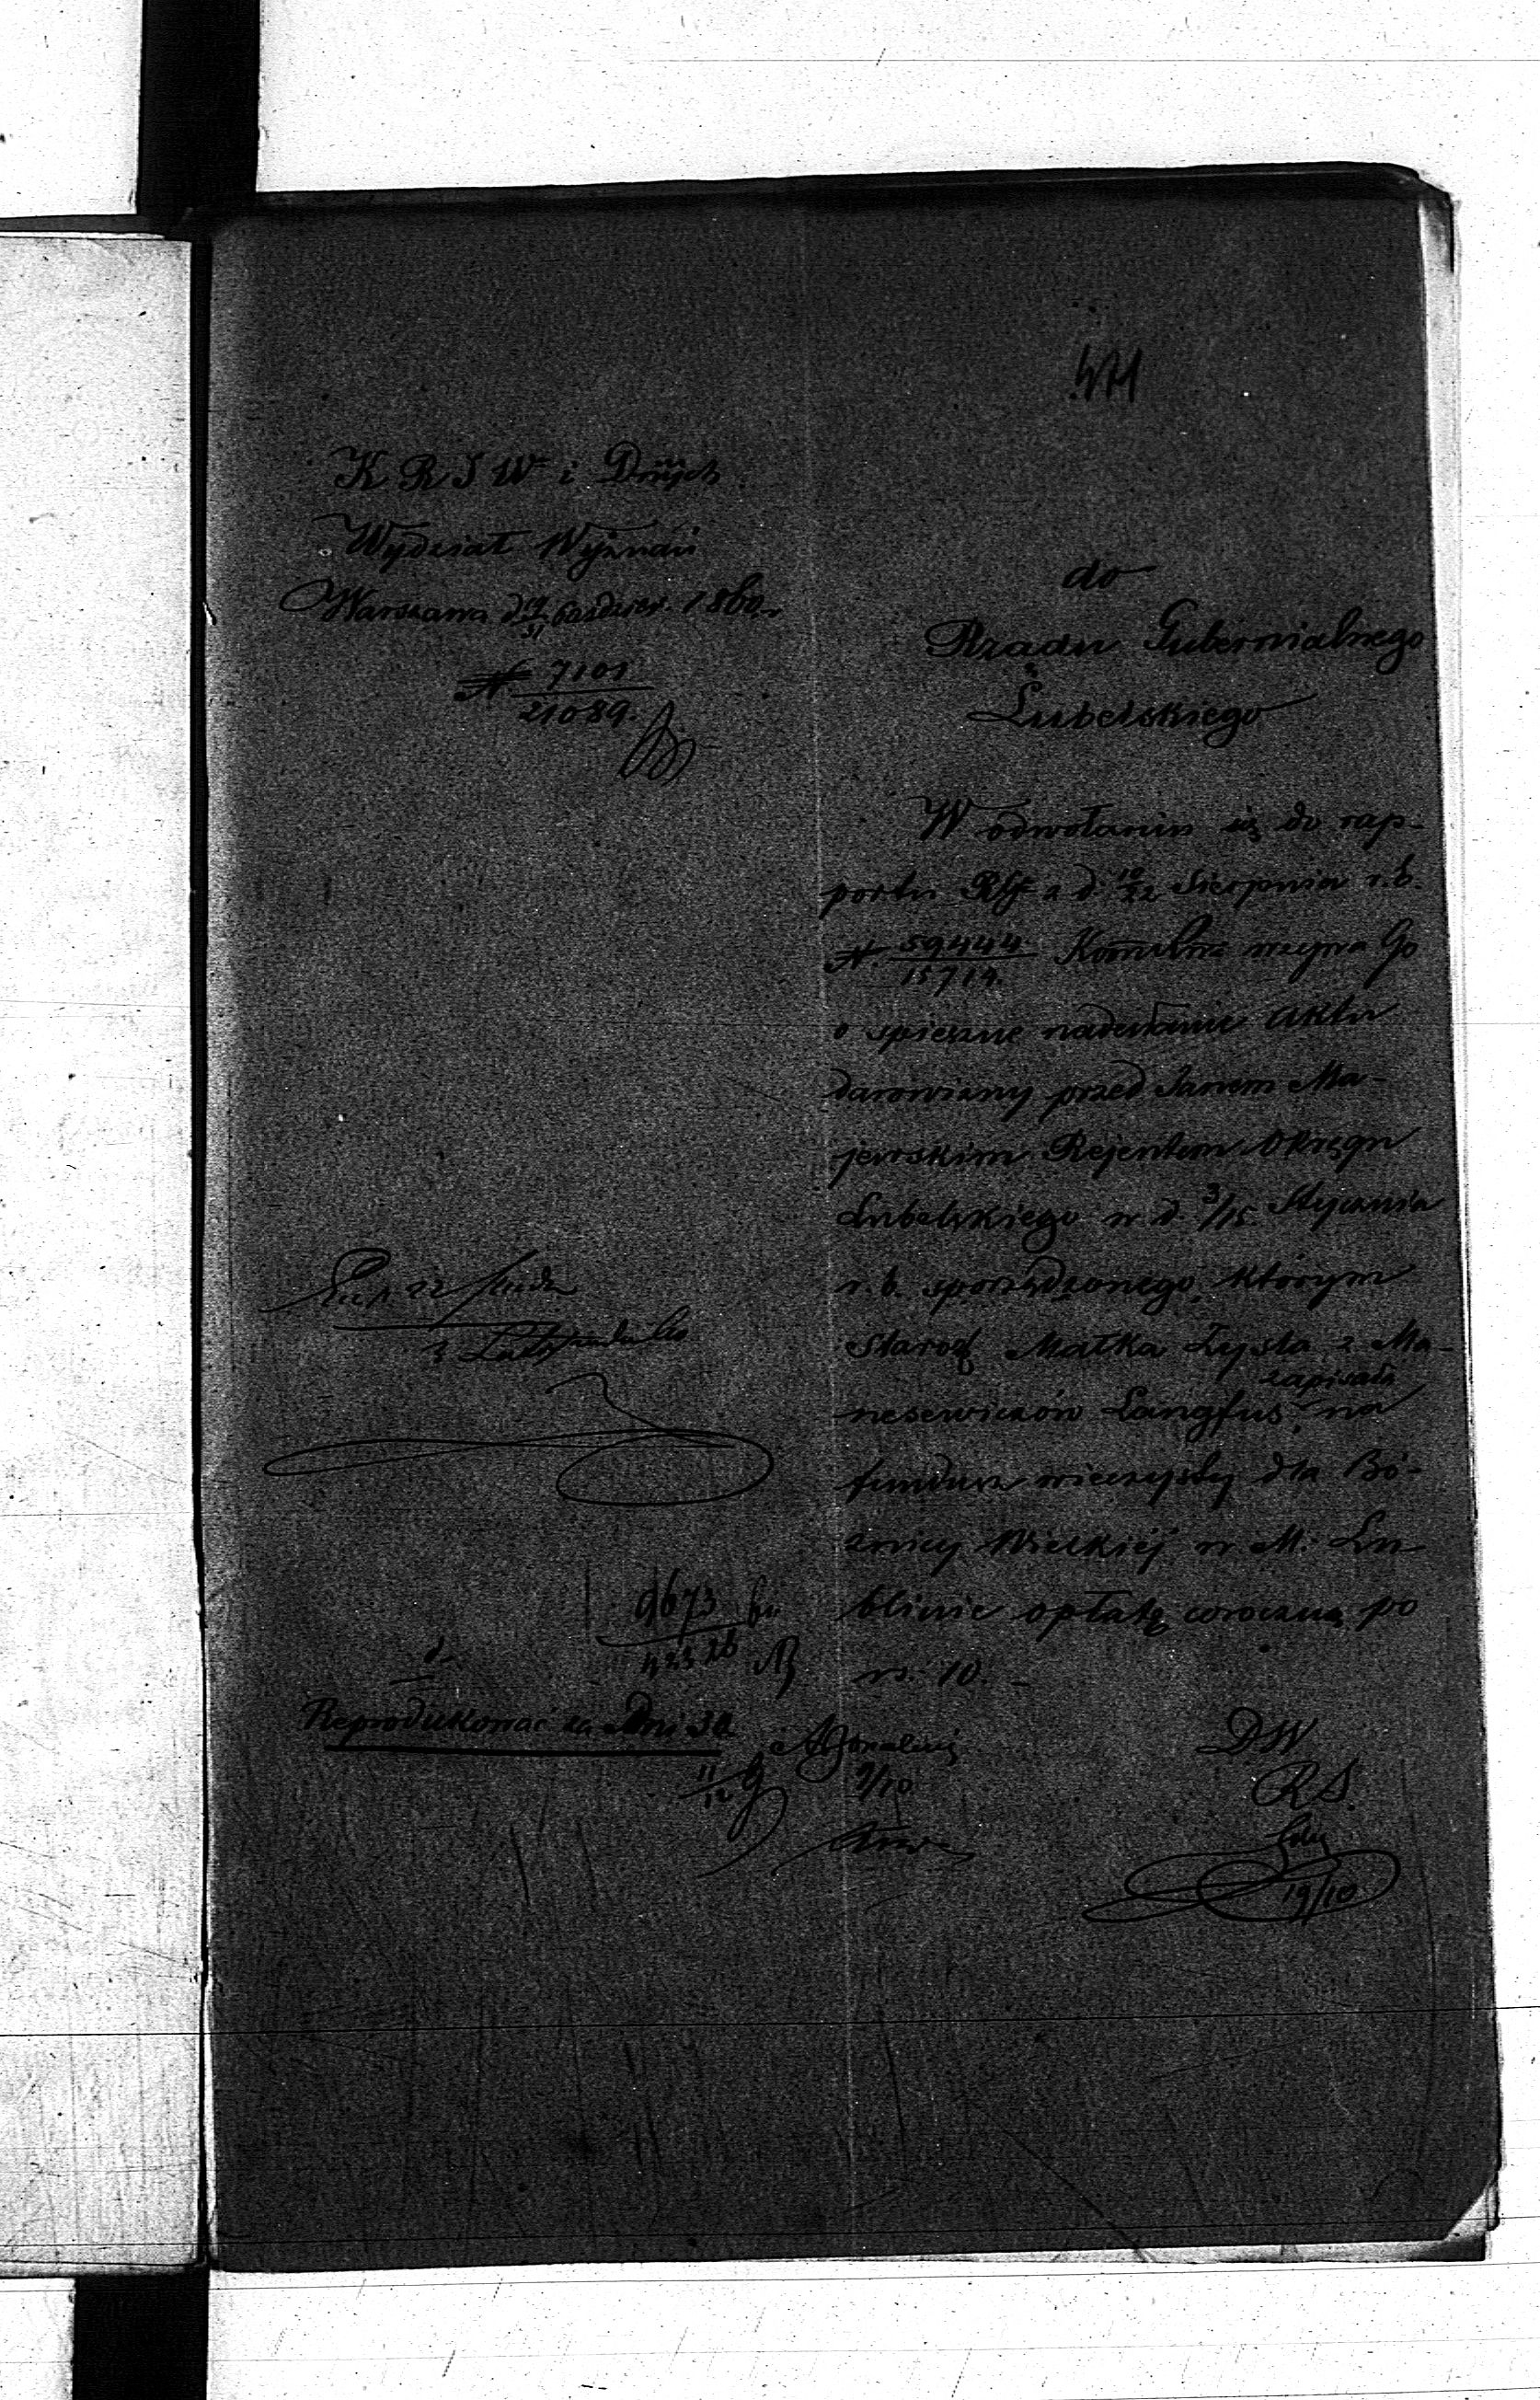 471
K R S W i Dnych
Wydział Wyznań
Warszawa d 19/31 Paździer. 1860 r.
N 7101/21089.
do
Rządu Gubernialnego
Lubelskiego
W odwołaniu się do rap-
portu RG z d. 10/22 Sierpnia r. b.
N. 59444/15714. wzywa Go
o spieszne nadesłanie Aktu
darowizny przed Janem Ma-
jewskim Rejentem Okręgu
Lubelskiego w d. 3/15 Stycznia
r. b. sporządzonego, którym
Staroz Małka Łysla z Ma-
zapisała
nesewiczów Langfus, na
fundusz wieczysty dla Bó-
żnicy Wielkiéj w M. Lu
blinie opłatę coroczną po
rs. 10. -
9673
42526
Reprodukować za Dni 30
11/10
9/10
DW
RS.
19/10